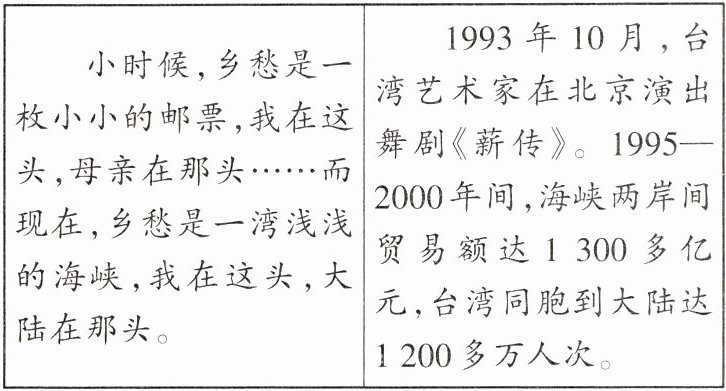 小时候,乡愁是一
枚小小的邮票,我在这
头,母亲在那头……而
现在,乡愁是一湾浅浅
的海峡,我在这头,大
陆在那头。
1993 年 10 月,台
湾艺术家在北京演出
舞剧《薪传》。1995—
2000年间,海峡两岸间
贸易额达 1 300 多亿
元,台湾同胞到大陆达
1 200 多万人次。